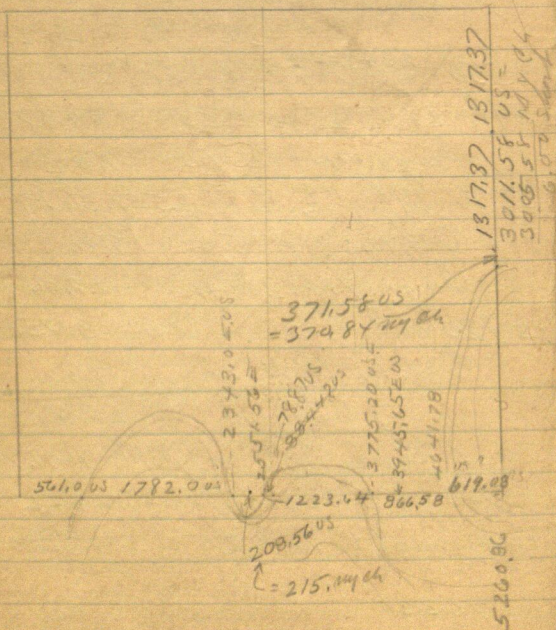 1317.37 1317.37
3011.58 US =
3005.58 My Ch
371.58 US
= 370.84 my ch
2343.0 = US
2551.56 =
78.87 US
88.44 US
3775.20 US =
3945.65 = US
4641.78
561.0 US 1782.0 US
1223.64 866.58 619.08 US
208.56 US
= 215. my ch
5260.86